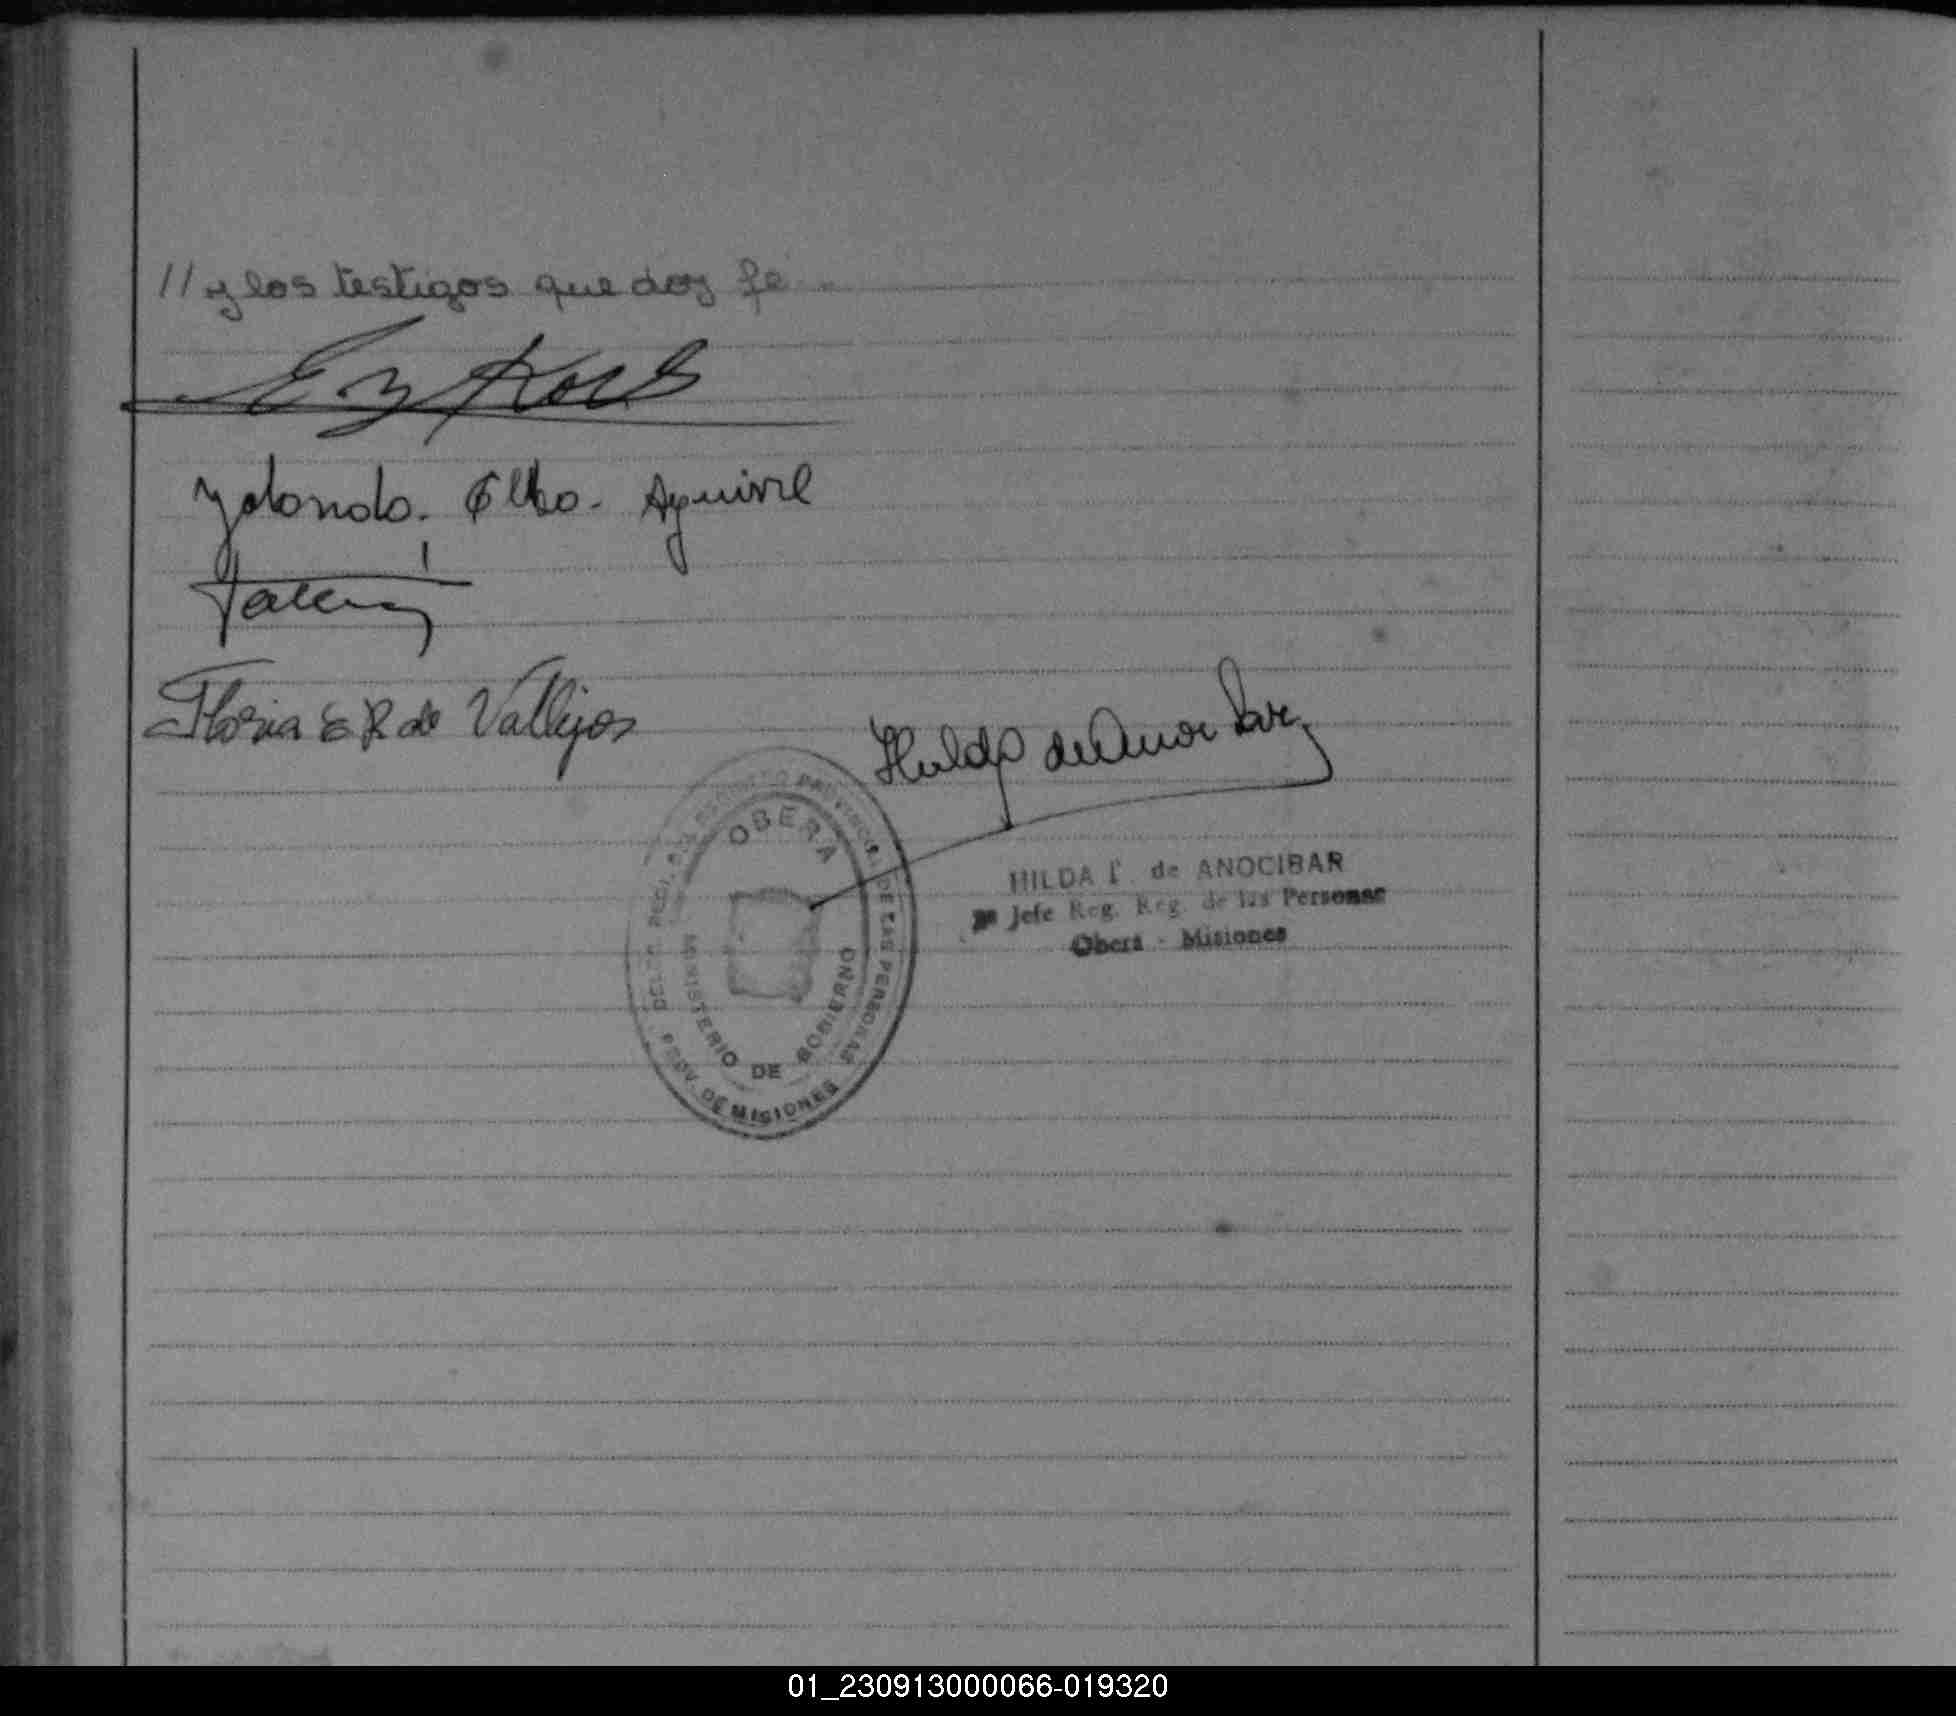 // y los testigos que doy fe
Yolanda. Elba. Aguirre
Floria E R de Vallejos
Hilda de Anocibar
OBERA
MINISTERIO DE GOBIERNO
PROVINCIAL DE LAS PERSONAS
PROV. DE MISIONES
HILDA I. de ANOCIBAR
Jefe Reg. Reg. de las Personas
Obera - Misiones
01_230913000066-019320